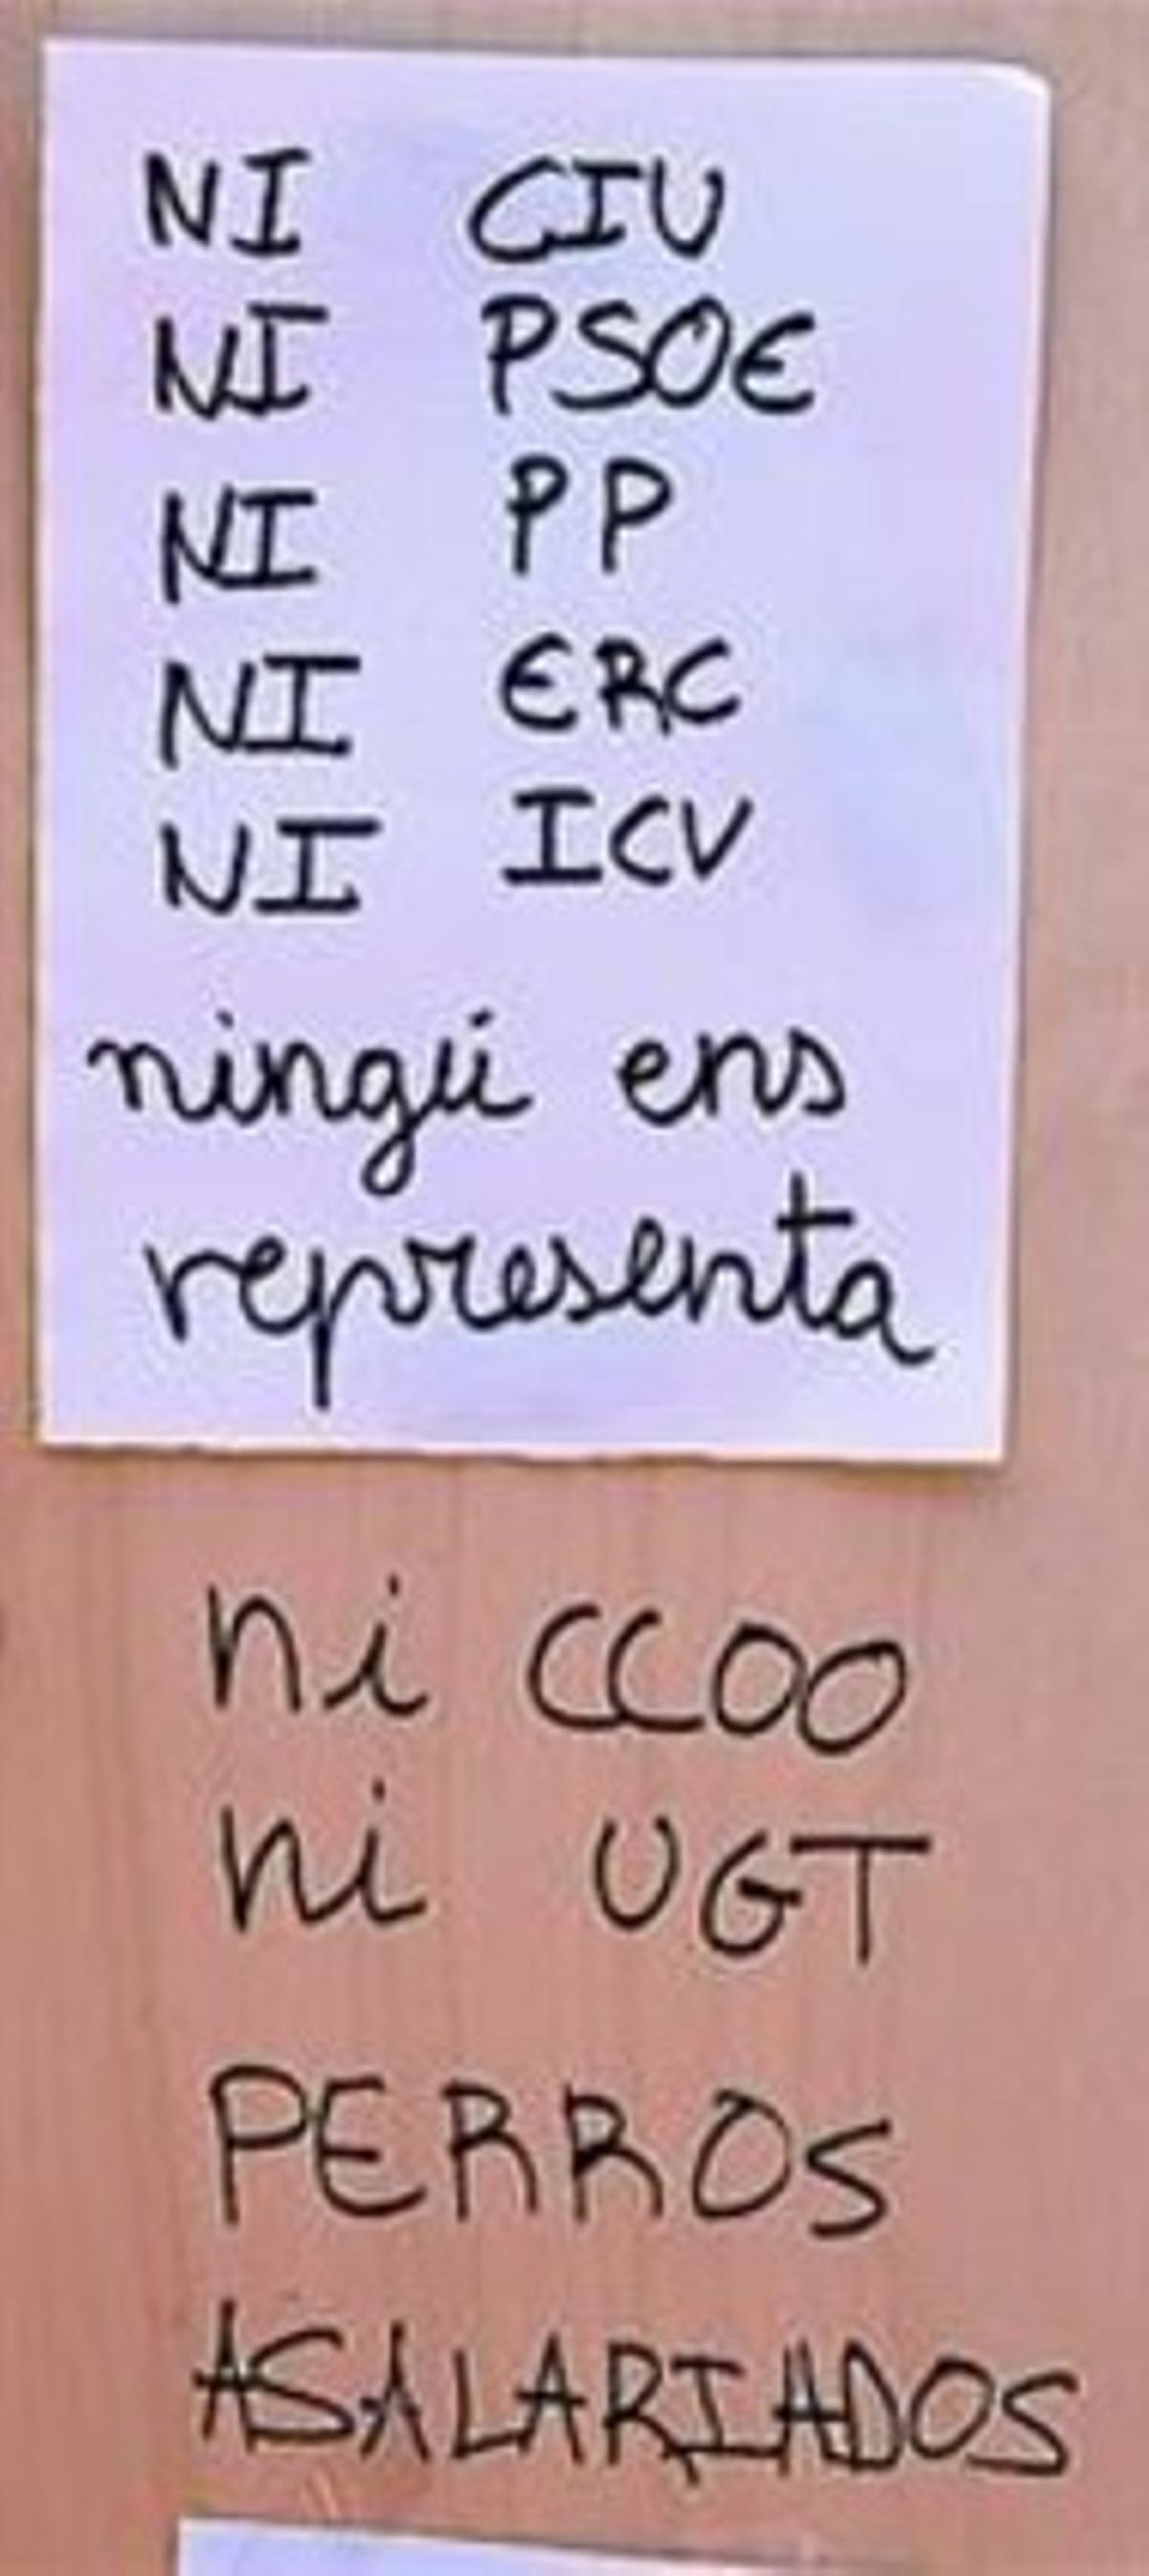 NI CIU
NI PSOE
NI PP
NI ERC
NI ICV
ningú ens
representa
ni CCOO
ni UGT
PERROS
ASALARIADOS